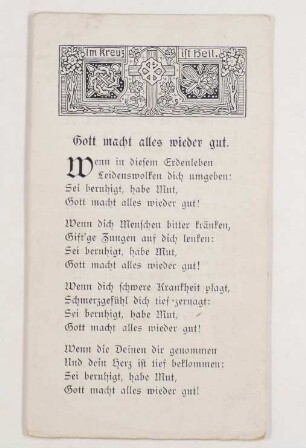 Im Kreuz ist Heil.
Gott macht alles wieder gut.
Wenn in diesem Erdenleben
Leidenswolken dich umgeben:
Sei beruhigt, habe Mut,
Gott macht alles wieder gut!
Wenn dich Menschen bitter kränken,
Gift'ge Zungen auf dich lenken:
Sei beruhigt, habe Mut,
Gott macht alles wieder gut!
Wenn dich schwere Krankheit plagt,
Schmerzgefühl dich tief zernagt:
Sei beruhigt, habe Mut,
Gott macht alles wieder gut!
Wenn die Deinen dir genommen
Und dein Herz ist tief beklommen:
Sei beruhigt, habe Mut,
Gott macht alles wieder gut!